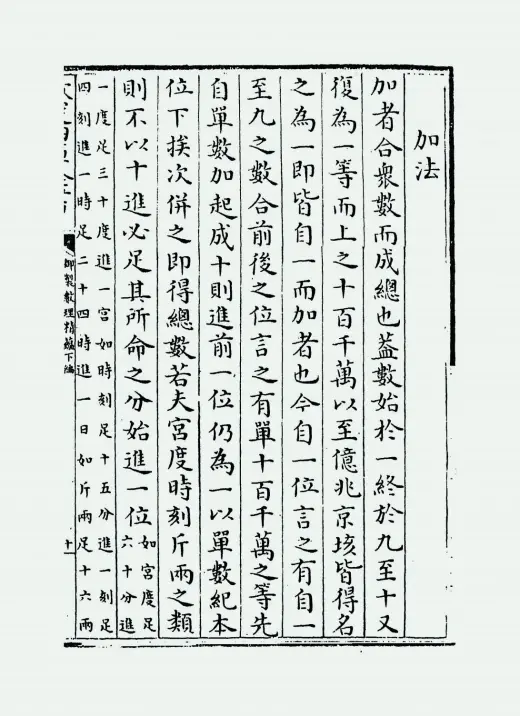 加法
加者合衆數而成總也葢數始於一終於九至十又
復為一等而上之十百千萬以至億兆京垓皆得名
之為一即皆自一而加者也今自一位言之有自一
至九之數合前後之位言之有單十百千萬之等先
自單數加起成十則進前一位仍為一以單數紀本
位下挨次併之即得總數若夫宮度時刻斤兩之類
則不以十進必足其所命之分始進一位如宮度足
六十分進
一度足三十度進一宮如時刻足十五分進一刻足
四刻進一時足二十四時進一日如斤兩足十六兩
御製數理精藴下編
十一